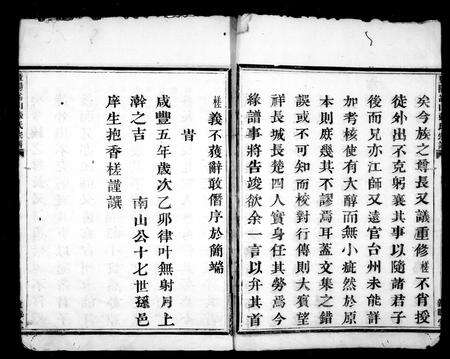 矣今族之尊長又議重修槎不肖授
徒外出不克躬襄其事以隨諸君子
後而兄亦江師又遠官台州未能詳
加考核使有大醇而無小疵然於原
本則庶幾其不謬焉耳蓋文集之錯
誤或不可知而校對行傳則大賓望
祥長城長楚四人實身任其勞焉今
緣譜事將告竣欲余一言以弁其首
槎義不獲辭敢僭序於簡端
旹
咸豐五年歲次乙卯律叶無射月上
澣之吉 南山公十七世孫邑
庠生抱香槎謹撰